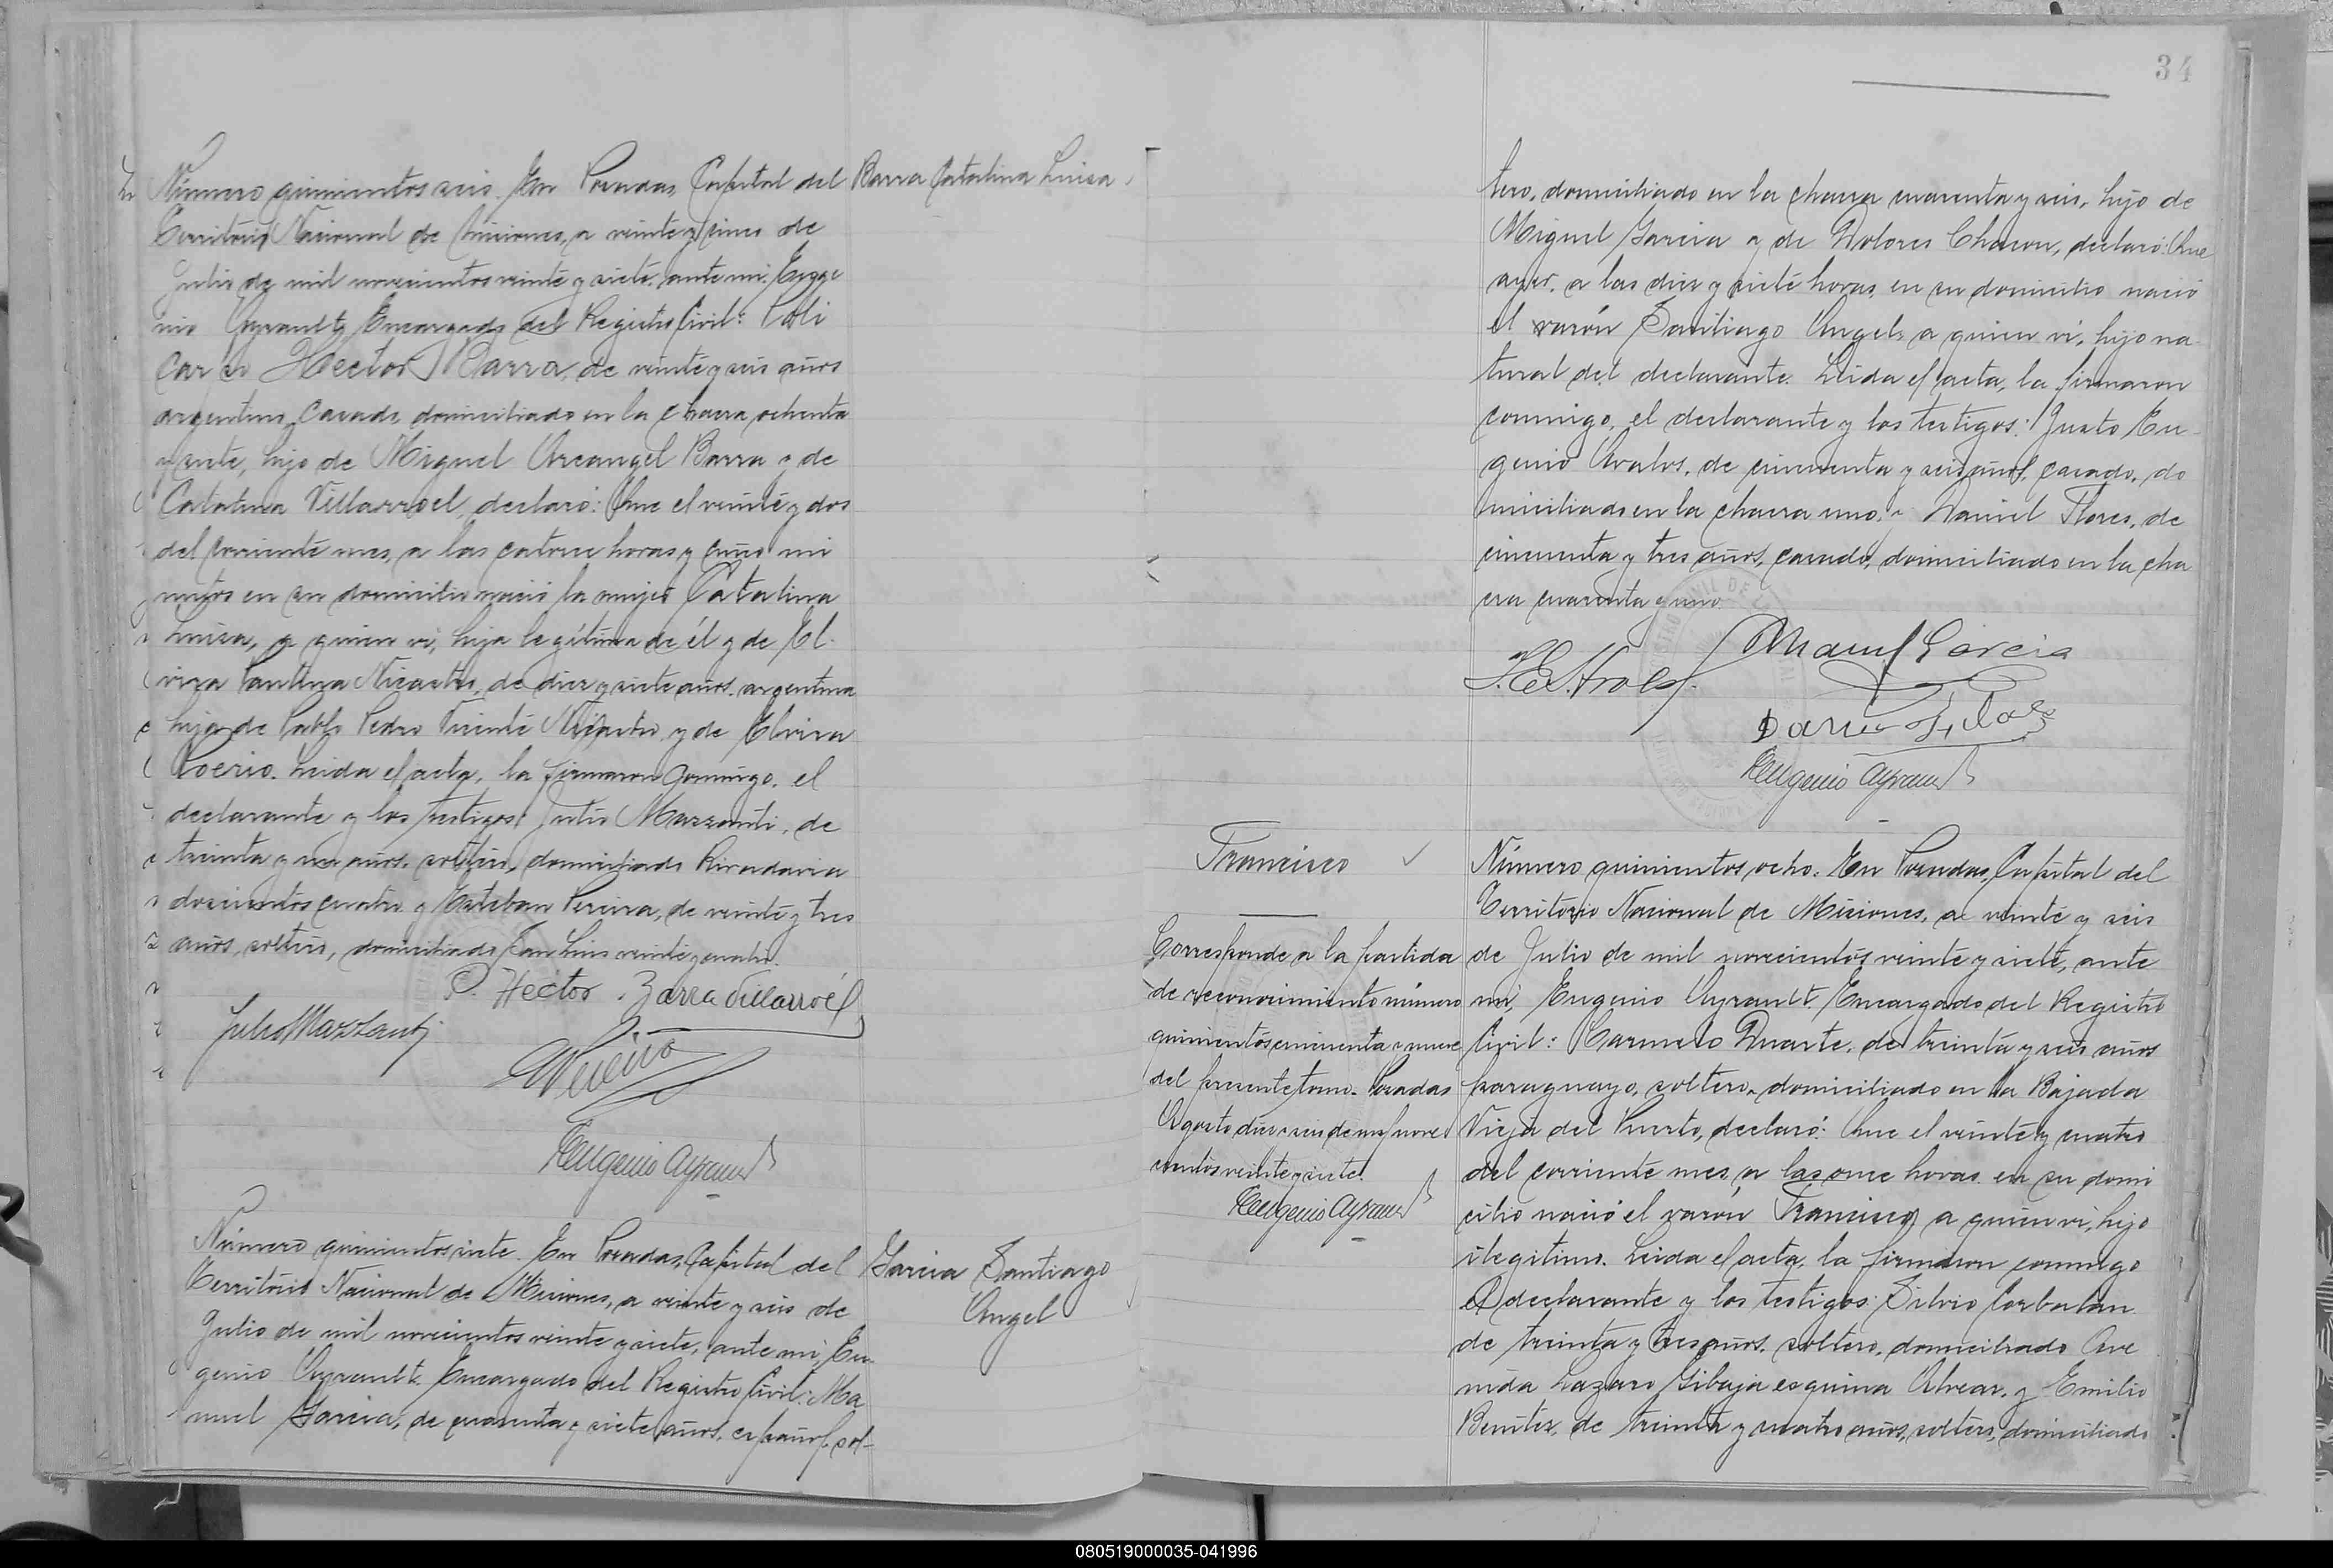 Número quinientos seis. En Posadas, Capital del
Barra Catalina Luisa
Territorio Nacional de Misiones, a veinte y cinco de
Julio de mil novecientos veinte y siete, ante mi, Euge
nio Ayrault, Encargado del Registro Civil: Poli
carpo Hector Barra, de veinte y seis años
argentino, casado, domiciliado en la chacra ochenta
y siete, hijo de Miguel Arcangel Barra y de
Catalina Villarroel, declaró: Que el veinte y dos
del corriente mes, a las catorce horas y cinco mi
nutos en su domicilio nació la mujer Catalina
Luisa, a quien vi, hija legítima de él y de El
vira Paulina Nicastro, de diez y siete años, argentina
hija de Pablo Pedro Vicente Nicastro y de Elvira
Poerio. Leida el acta, la firmaron conmigo, el
declarante y los testigos: Julio Mazzanti, de
treinta y un años, soltero, domiciliado Rivadavia
doscientos cuatro y Esteban Pereira, de veinte y tres
años, soltero, domiciliado San Luis veinte y cuatro.
P. Hector Barra Villarroel
Julio Mazzanti
EPereira
Eugenio Ayrault
Número quinientos siete. En Posadas, Capital del
Garcia Santiago
Angel
Territorio Nacional de Misiones, a veinte y seis de
Julio de mil novecientos veinte y siete, ante mi, Eu
genio Ayrault, Encargado del Registro Civil: Ma
nuel Garcia, de cuarenta y siete años, español, sol-
34
tero, domiciliado en la chacra cuarenta y seis, hijo de
Miguel Garcia y de Dolores Chacon, declaró: Que
ayer, a las diez y siete horas, en su domicilio nació
el varón Santiago Angel, a quien vi, hijo na
tural del declarante. Leida el acta, la firmaron
conmigo, el declarante y los testigos: Justo Eu
genio Avalos, de cincuenta y seis años, casado, do
miciliado en la chacra uno, y Daniel Flores, de
cincuenta y tres años, casado, domiciliado en la cha
cra cuarenta y uno.
Manuel Garcia
Eugenio Ayrault
Francisco
Corresponde a la partida
de reconocimiento número
quinientos cincuenta y nueve
del presente tomo. Posadas
Agosto diez y seis de mil nove
cientos veinte y siete.
Eugenio Ayrault
Número quinientos ocho. En Posadas, Capital del
Territorio Nacional de Misiones, a veinte y seis
de Julio de mil novecientos veinte y siete, ante
mi, Eugenio Ayrault, Encargado del Registro
Civil: Carmelo Duarte, de treinta y seis años
paraguayo, soltero, domiciliado en la Bajada
Vieja del Puerto, declaró: Que el veinte y cuatro
del corriente mes, a las once horas en su domi
cilio nació el varón Francisco, a quien vi, hijo
ilegitimo. Leida el acta, la firmaron conmigo
el declarante y los testigos: Silvio Corbalan
de treinta y tres años, soltero, domiciliado Ave
nida Lazaro Gibaja esquina Alvear, y Emilio
Benitez, de treinta y cuatro años, soltero, domiciliado
080519000035-041996